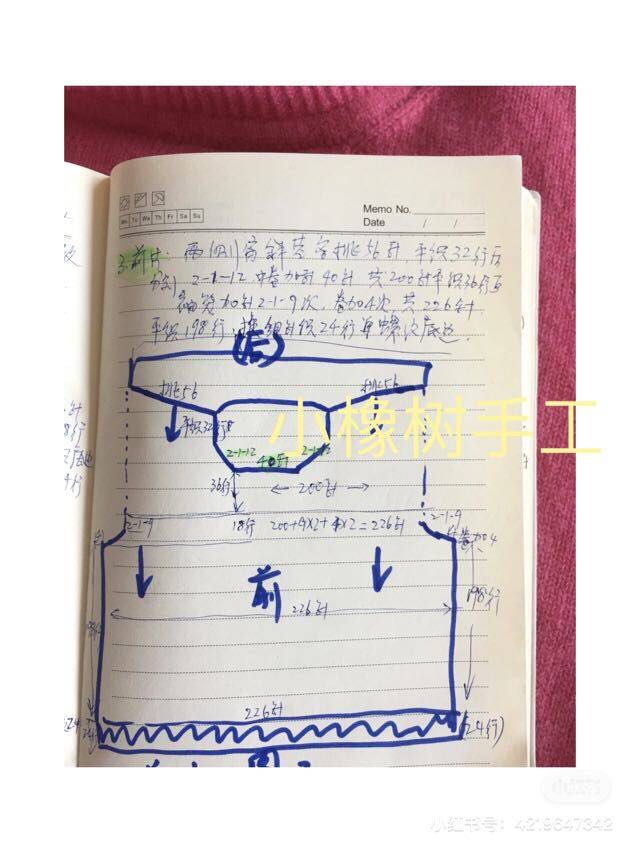 Memo No.
Mo Tu We Th Fr Sa Su
Date / /
3.前片:两侧肩斜各挑56针,平织32行后
分别2-1-12,中卷加针40针,共200针平织36行后
加针2-1-9次,卷加4次,共226针
平织198行,换细针织24行单螺纹底边.
(后)
挑56
挑56
平织32行
2-1-12
40针
2-1-12
小橡树手工
36行
200针
2-1-9
18行
200+9×2+4×2=226针
2-1-9
卷加4
前
226针
198行
198行
226针
24
(24行)
小红书
小红书号:4219647342